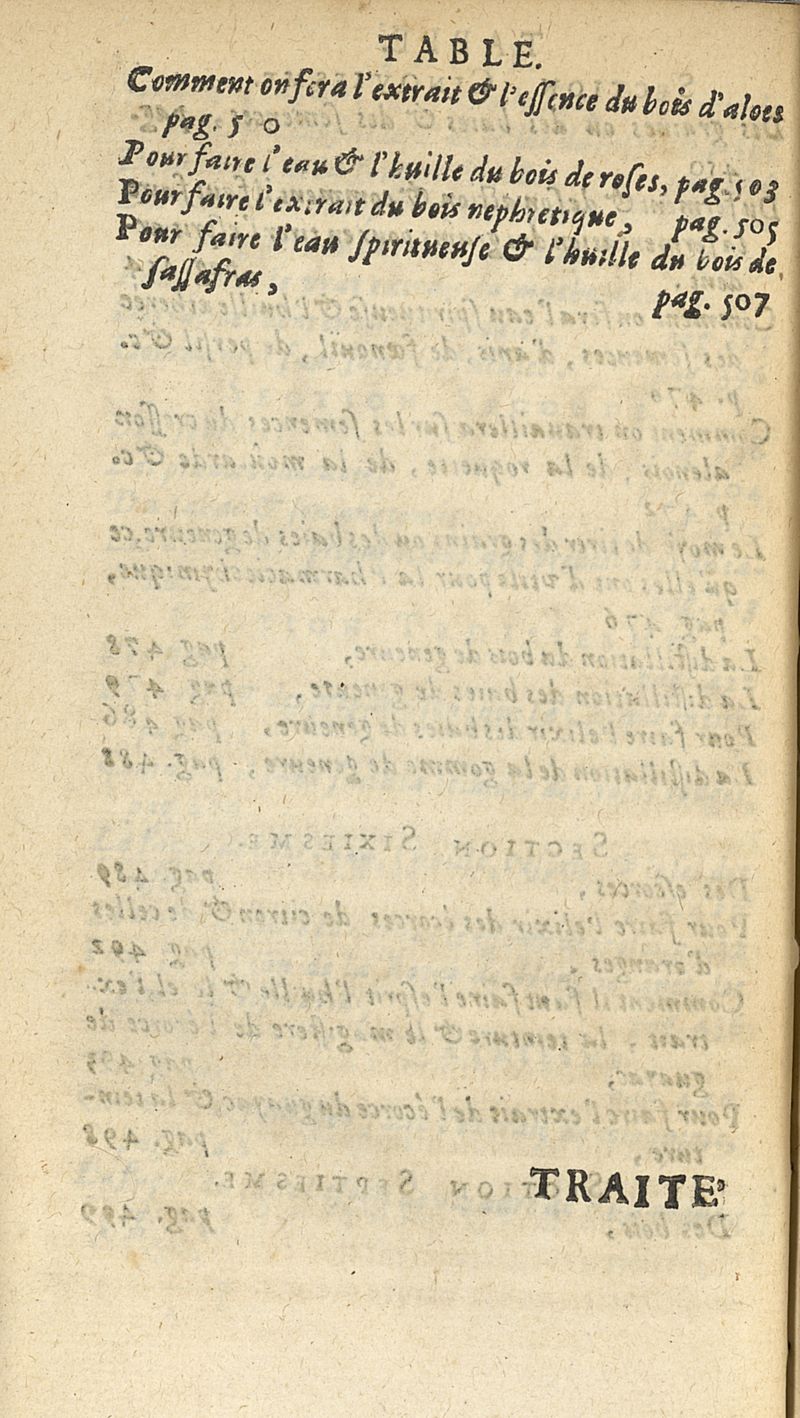 TABLE.
Comment on fera l'extrait & l'essence du bois d'aloes
pag. 5 0
Pour faire l'eau & l'huille du bois de roses, pag. 503
Pour faire l'extrait du bois nephretique, pag. 505
Pour faire l'eau spiritueuse & l'huille du bois de
sassafras,
pag. 507
TRAITE'